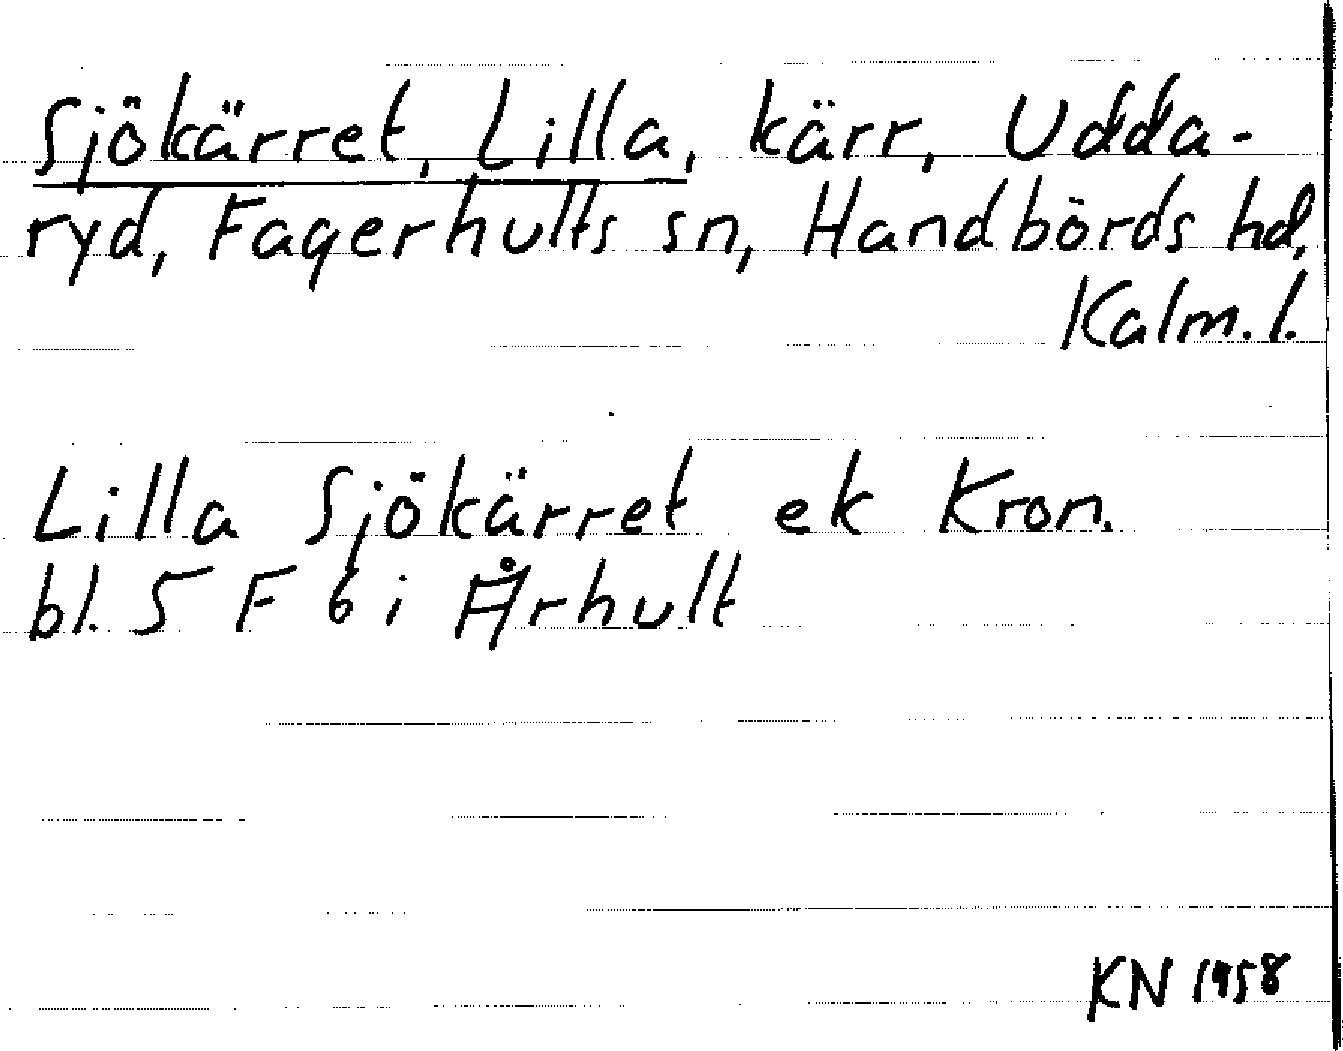 Sjökärret, Lilla, kärr, Udda-
ryd, Fagerhults sn, Handbörds hd,
Kalm. l.
Lilla Sjökärret ek Kron.
bl. 5 F 6 i Århult
KN 1958